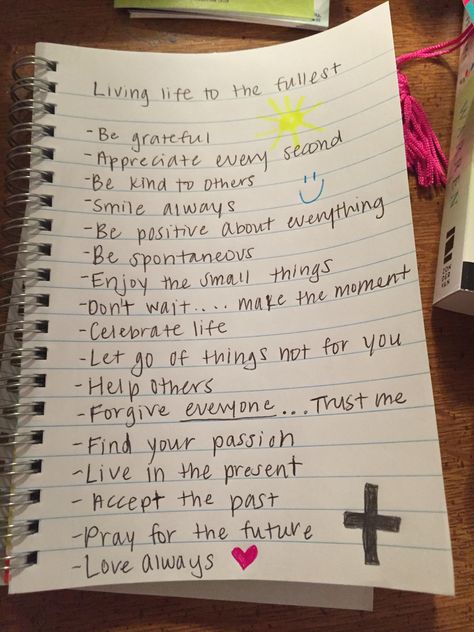 Living life to the fullest
-Be grateful
-Appreciate every second
-Be kind to others
-Smile always
-Be positive about everything
-Be spontaneous
-Enjoy the small things
-Don't wait.... make the moment
-Celebrate life
-Let go of things not for you
-Help others
-Forgive everyone...Trust me
-Find your passion
-Live in the present
-Accept the past
-Pray for the future
-Love always